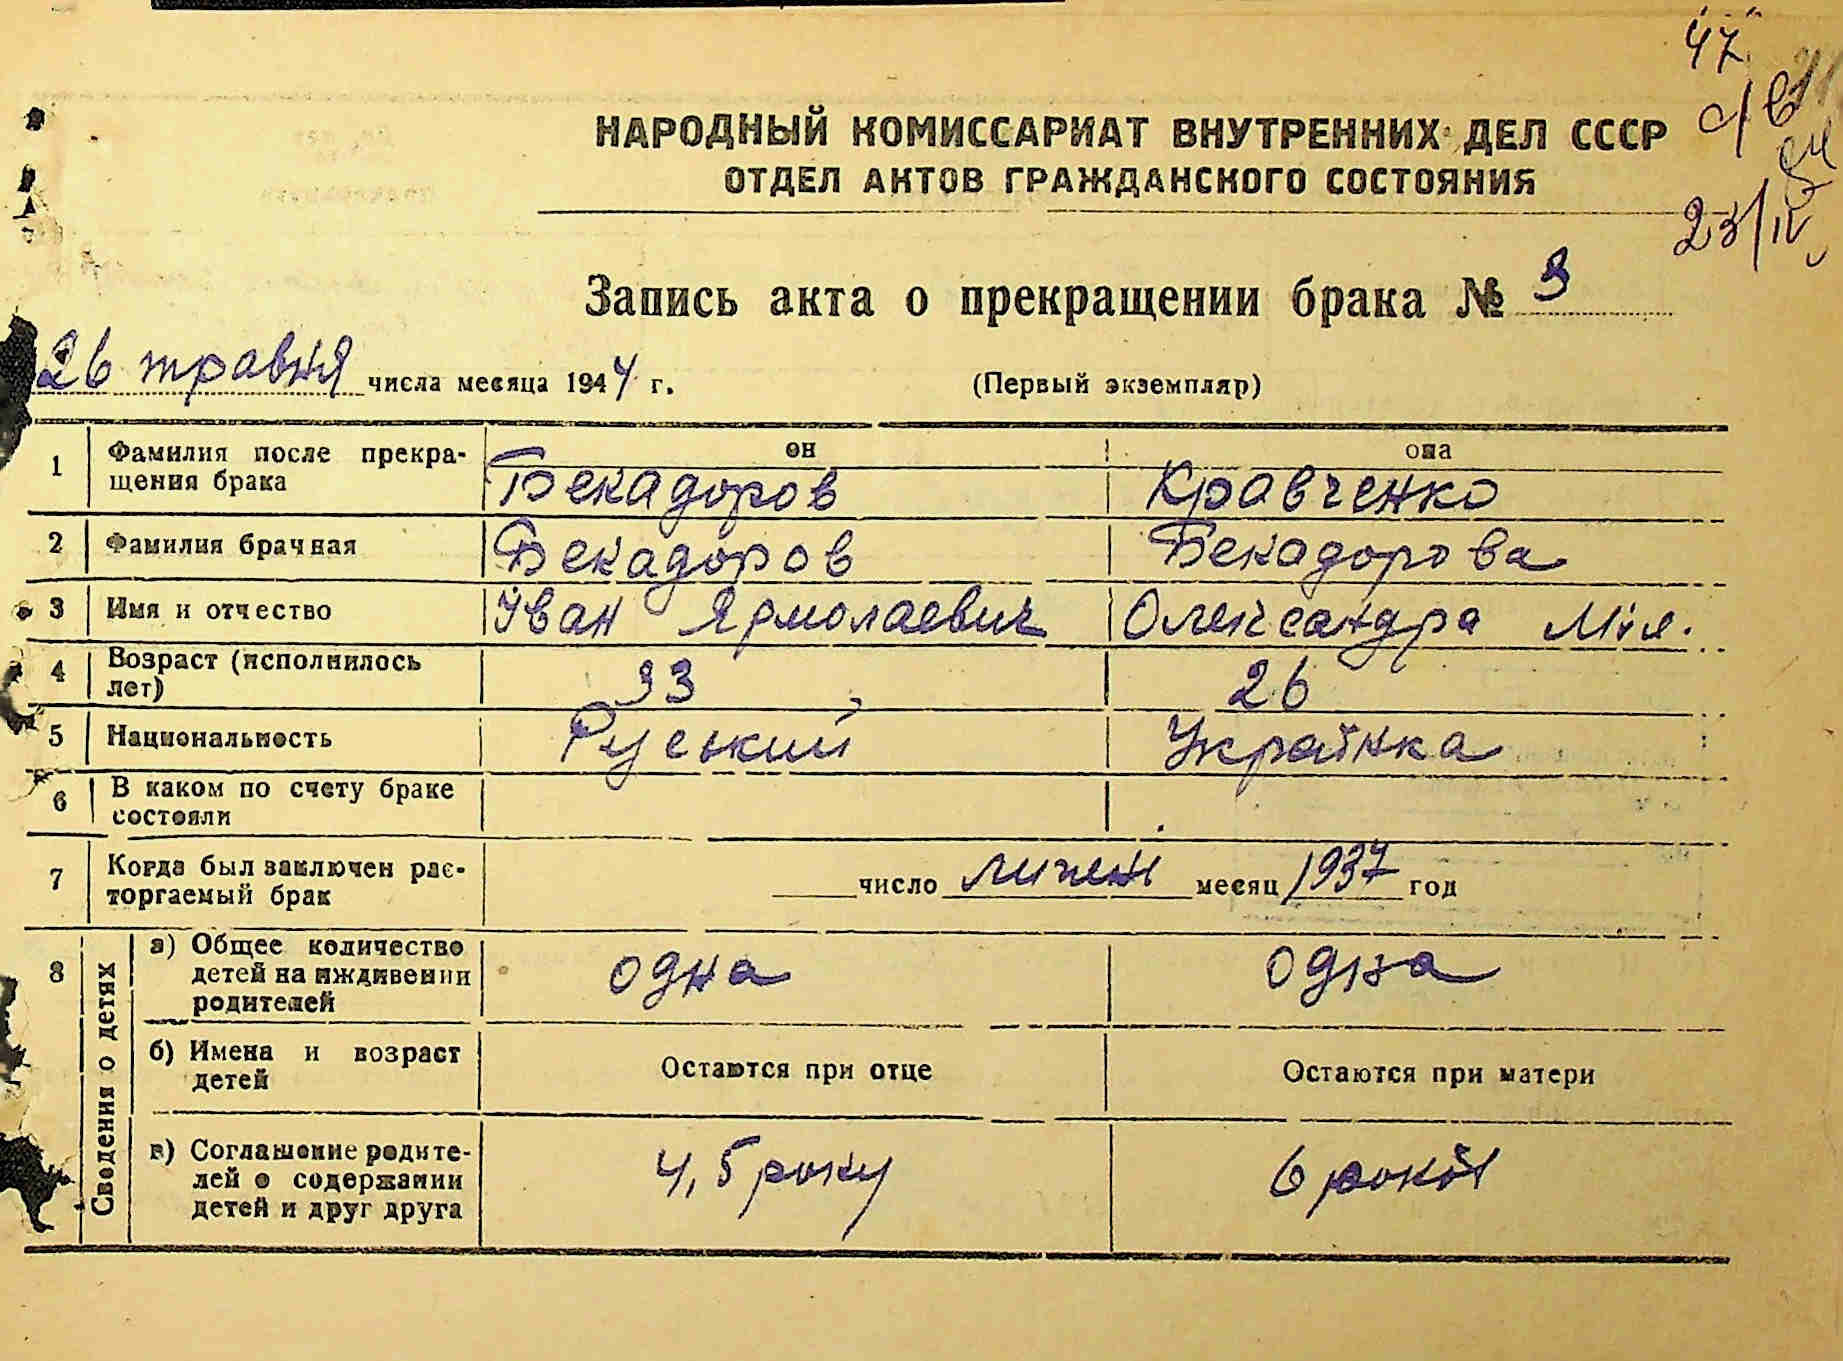 47
НАРОДНЫЙ КОМИССАРИАТ ВНУТРЕННИХ ДЕЛ СССР
ОТДЕЛ АКТОВ ГРАЖДАНСКОГО СОСТОЯНИЯ
23/IV
Запись акта о прекращении брака № 3
26 травня числа месяца 1944 г. (Первый экземпляр)
он она
1 Фамилия после прекра- Бекадоров Кравченко
щения брака
2 Фамилия брачная Бекадоров Бекадорова
3 Имя и отчество Іван Ярмолаевич Олександра
4 Возраст (исполнилось 33 26
лет)
5 Национальность Руський Українка
6 В каком по счету браке
состояли
7 Когда был заключен рас- число липень месяц 1937 год
торгаемый брак
8 Сведения о детях
а) Общее количество одна одна
детей на иждивении
родителей
б) Имена и возраст Остаются при отце Остаются при матери
детей
в) Соглашение родите- 4,5 року 6 років
лей о содержании
детей и друг друга